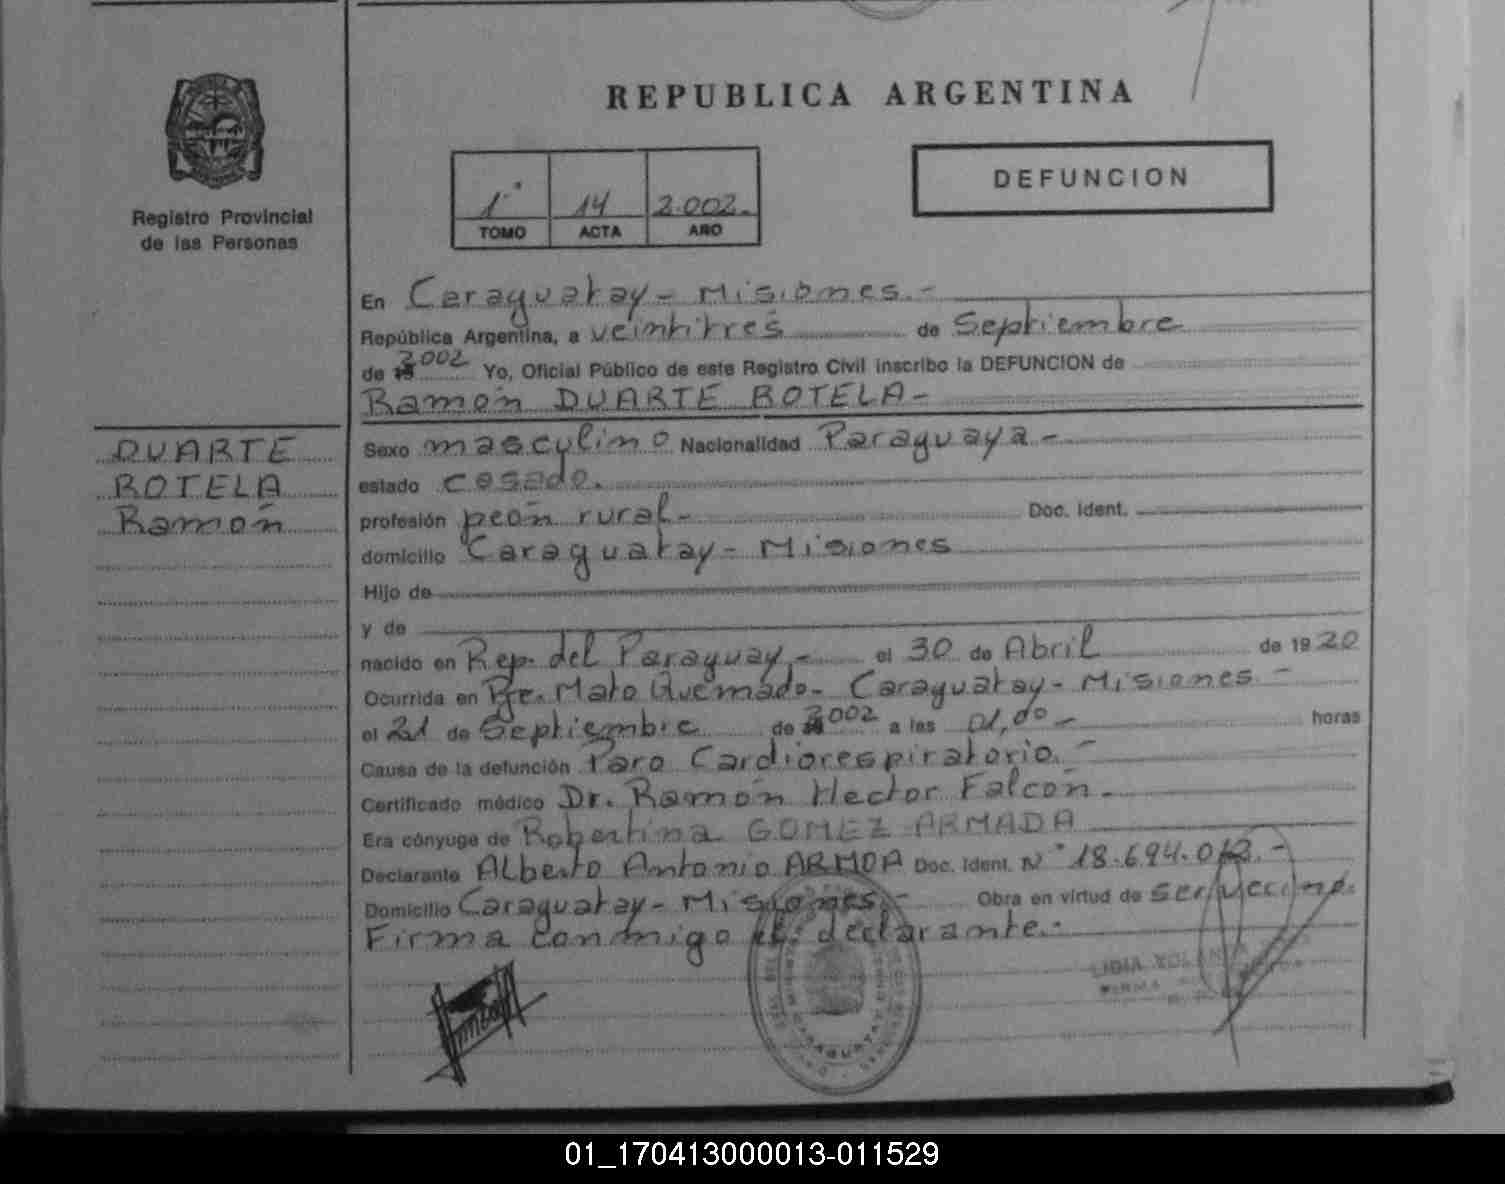 REPUBLICA ARGENTINA
Registro Provincial
de las Personas
1.º 14 2.002.-
TOMO ACTA AÑO
DEFUNCION
En Caraguatay - Misiones.-
República Argentina, a veintitres de Septiembre
de 2002 Yo, Oficial Público de este Registro Civil inscribo la DEFUNCION de
Ramón DUARTE ROTELA-
DUARTE
ROTELA
Ramón
Sexo masculino Nacionalidad Paraguaya-
estado casado.
profesión peón rural- Doc. Ident.
domicilio Caraguatay - Misiones
Hijo de
y de
nacido en Rep. del Paraguay,- el 30 de Abril de 1920
Ocurrida en Pje. Mato Quemado- Caraguatay - Misiones.-
el 21 de Septiembre de 2002 a las 01,00- horas
Causa de la defunción Paro Cardiorespiratorio.-
Certificado médico Dr. Ramón Hector Falcón.-
Era cónyuge de Robertina GOMEZ ARMADA
Declarante Alberto Antonio ARMOA Doc. Ident. Nº 18.694.0
Domicilio Caraguatay - Misiones.- Obra en virtud de ser vecino.
Firma conmigo el declarante.-
LIDIA
CARAGUATAY
01_170413000013-011529